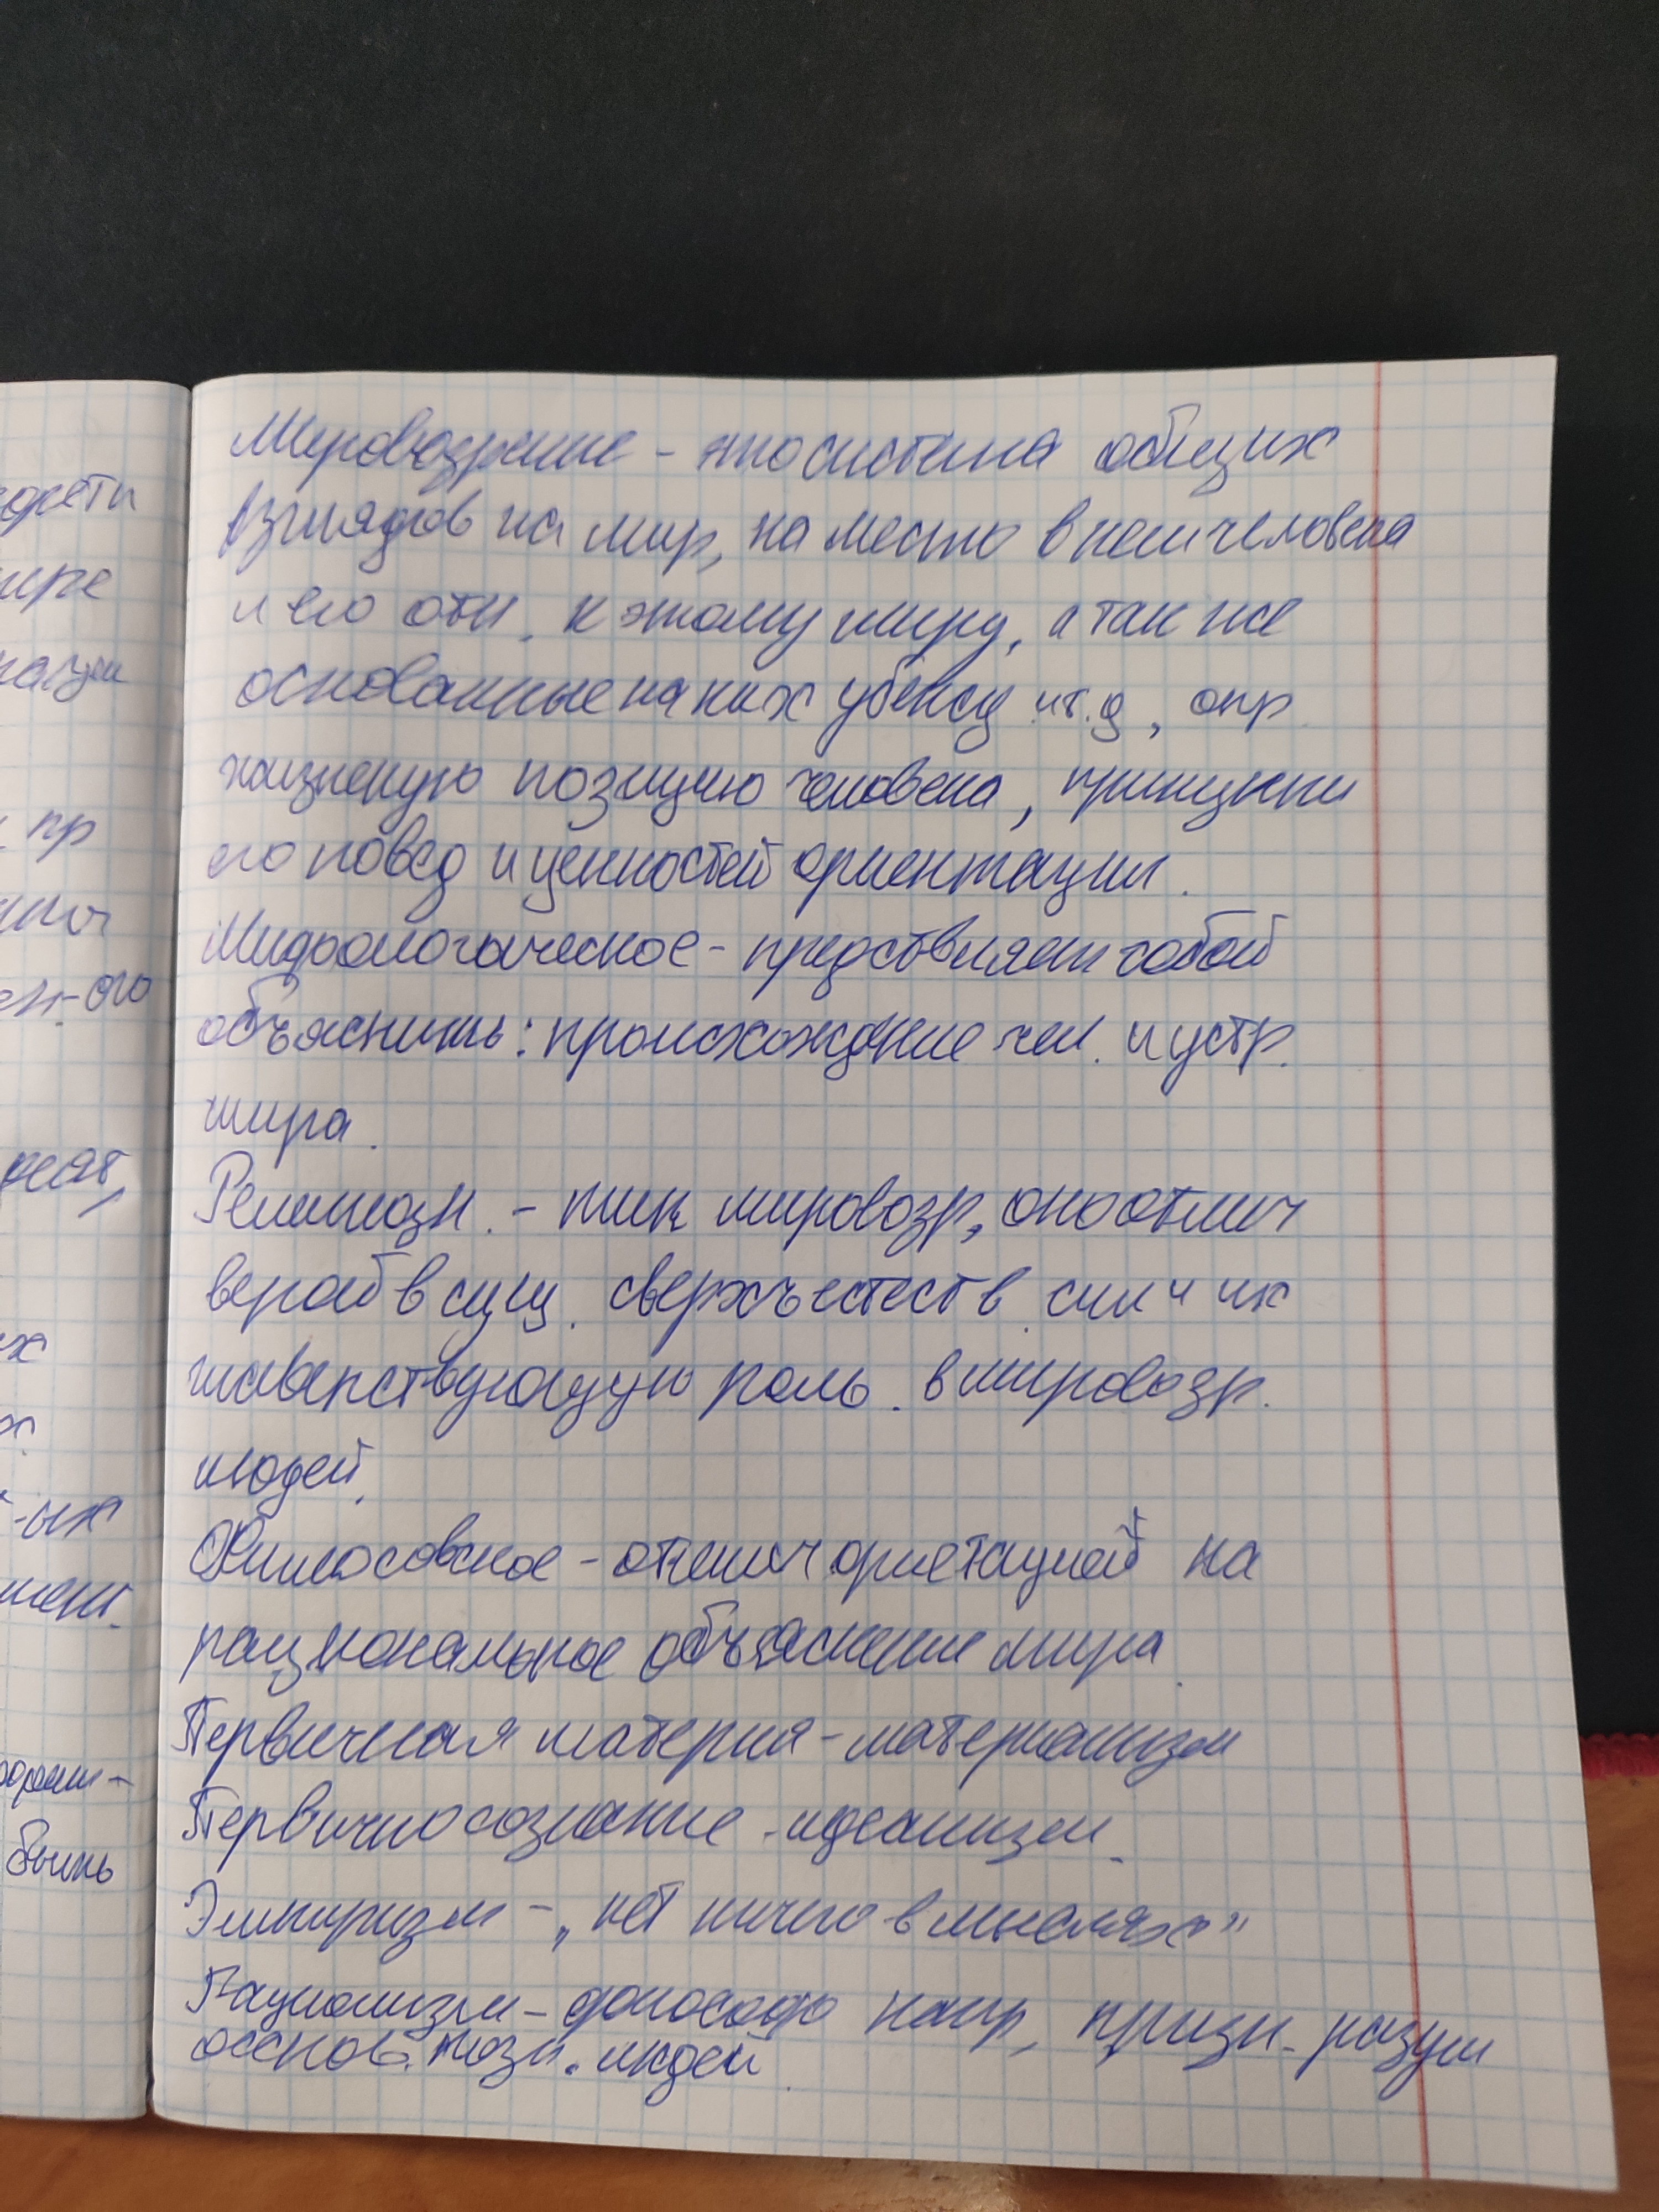 орети
ире
нацеи
пр
ен-ого
х
-ых
мент.
быть
Мировозрение - это система общих
взглядов на мир, на место в нем человека
и его отн. к этому миру, а так же
основанные на них убежд и т.д, опр.
жизненую позицию человека, принципи
его повед и ценностей ориентации.
Мифологоическое - предствляет собой
объяснить: происхождение чел. и устр.
мира.
Религиозн. - тип мировозр, оно отлич
верой в сущ. сверхъестеств. сил и их
главенствующую роль. в мировозр.
людей.
Философское - отлич ориетацией на
рациональное объяснение мира.
Первичная материя - материализм
Первично сознание - идеализм.
Эмпиризм - „нет ничего в мыслях"
Рационализм - философ напр, призн. разум
основ. позн. людей.